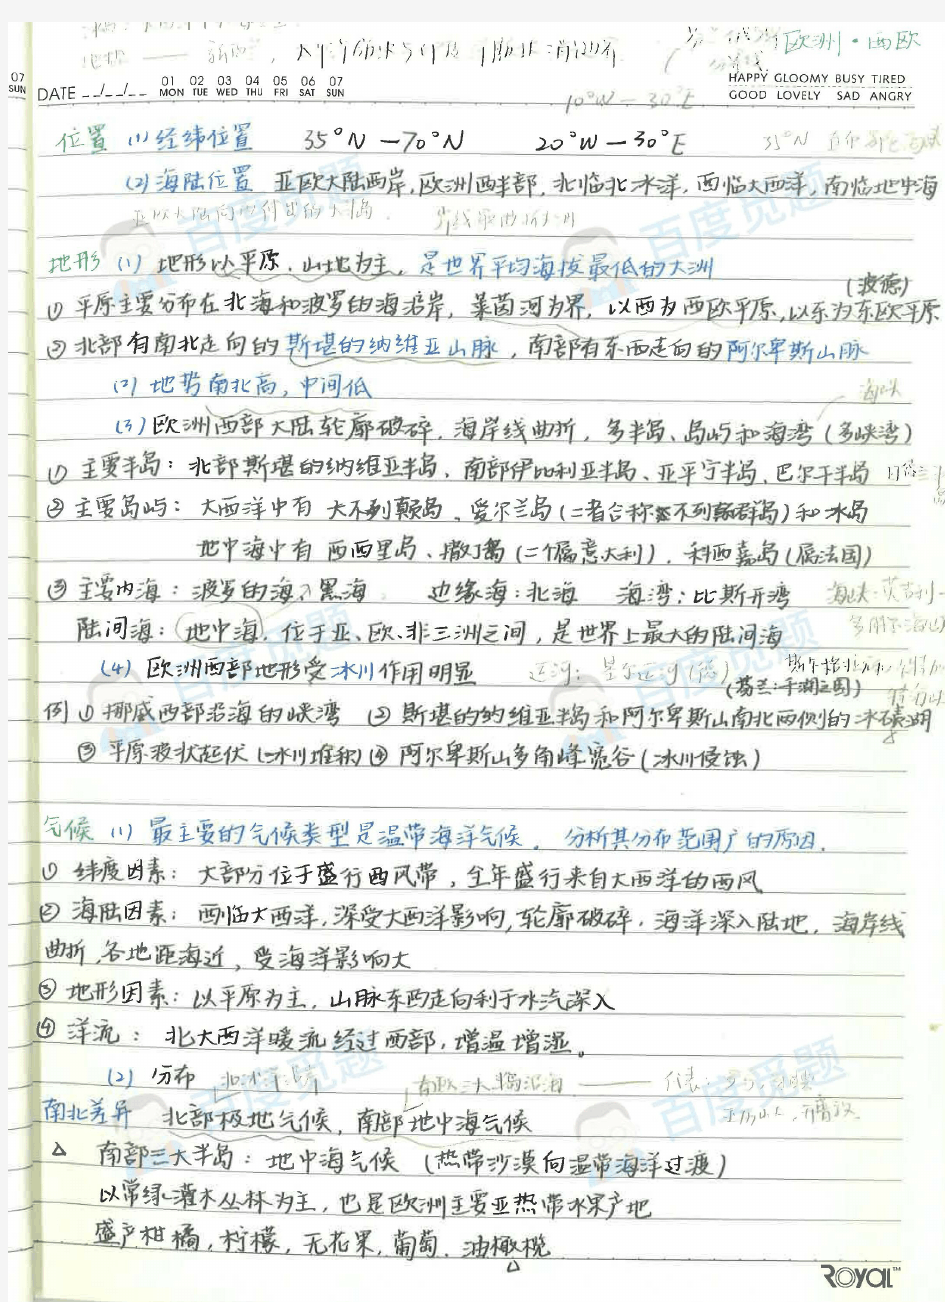 欧洲·西欧
07
SUN
DATE _ _/_ _/_ _
01 02 03 04 05 06 07
MON TUE WED THU FRI SAT SUN
HAPPY GLOOMY BUSY TIRED
GOOD LOVELY SAD ANGRY
10°W — 30°E
位置 (1) 经纬位置 35°N — 70°N 20°W — 30°E 35°N
(2) 海陆位置 亚欧大陆西岸,欧洲西半部,北临北冰洋,西临大西洋,南临地中海
亚欧大陆向西伸出的大半岛. 岸线最曲折大洲
地形 (1) 地形以平原、山地为主,是世界平均海拔最低的大洲
(波德)
① 平原主要分布在北海和波罗的海沿岸,莱茵河为界,以西为西欧平原,以东为东欧平原
② 北部有南北走向的斯堪的纳维亚山脉,南部有东西走向的阿尔卑斯山脉
(2) 地势南北高,中间低
海峡
(3) 欧洲西部大陆轮廓破碎,海岸线曲折,多半岛、岛屿和海湾(多峡湾)
① 主要半岛:北部斯堪的纳维亚半岛、南部伊比利亚半岛、亚平宁半岛、巴尔干半岛
② 主要岛屿:大西洋中有 大不列颠岛、爱尔兰岛(二者合称不列颠群岛)和冰岛
地中海中有 西西里岛、撒丁岛(二个属意大利),科西嘉岛(属法国)
③ 主要内海:波罗的海、黑海 边缘海:北海 海湾:比斯开湾 海峡:英吉利
陆间海:地中海,位于亚、欧、非三洲之间,是世界上最大的陆间海
(4) 欧洲西部地形受冰川作用明显 运河:基尔运河(德)
(芬兰:千湖之国)
例 ① 挪威西部沿海的峡湾 ② 斯堪的纳维亚半岛和阿尔卑斯山南北两侧的冰碛湖
③ 平原波状起伏(冰川堆积) ④ 阿尔卑斯山多角峰宽谷(冰川侵蚀)
气候 (1) 最主要的气候类型是温带海洋气候. 分析其分布范围广的原因.
① 纬度因素:大部分位于盛行西风带,全年盛行来自大西洋的西风
② 海陆因素:西临大西洋,深受大西洋影响,轮廓破碎,海洋深入陆地,海岸线
曲折,各地距海近,受海洋影响大
③ 地形因素:以平原为主,山脉东西走向利于水汽深入
④ 洋流:北大西洋暖流经过西部,增温增湿。
(2) 分布 南欧三大半岛沿海 —— 代表:
南北差异 北部极地气候,南部地中海气候
△ 南部三大半岛:地中海气候 (热带沙漠向温带海洋过渡)
以常绿灌木丛林为主,也是欧洲主要亚热带水果产地
盛产柑橘,柠檬,无花果,葡萄、油橄榄
△
ROYAL™
百度觅题
百度觅题
百度觅题
百度觅题
百度觅题
百度觅题